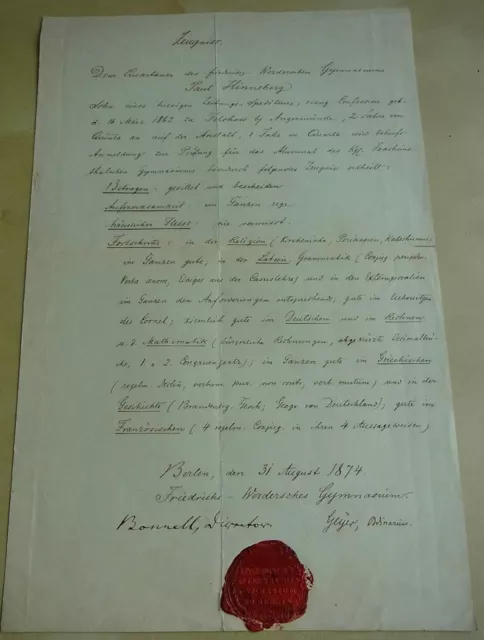 Zeugniss.
Dem Quartaner des Friedrichs Werderschen Gymnasiums
Paul Hinneberg
Sohn eines hiesigen Zeitungs-Spediteurs, evang. Confession geb.
d. 16 März 1862 zu bei Angermünde, 2 Jahre in
Quinta an auf der Anstalt, 1 Jahr in Quarta wird behufs
Anmeldung zur Prüfung für das Alumnat des Kgl. Joachims-
thalschen Gymnasiums hierdurch folgendes Zeugniss ertheilt:
Betragen: gesittet und bescheiden
Aufmerksamkeit: im Ganzen rege
häuslicher Fleiss: nie vermisst.
Fortschritte: in der Religion (Kirchenjahr, Perikopen, Katechismus)
im Ganzen gute, in der Latein. Grammatik (Conjug. periphr.
Verba anom., Einiges aus der Casuslehre) und in den Extemporalien
im Ganzen den Anforderungen entsprechend, gute im Uebersetzen
des Cornel; ziemlich gute im Deutschen und im Rechnen
u. d. Mathematik (bürgerliche Rechnungen, abgekürzte Decimalbrü-
che, 1 u. 2. Congruenzsatz); im Ganzen gute im Griechischen
(regelm. Decl., verbum pur. non contr., verb. mutum) und in der
Geschichte (Brandenbg. Gesch.; Geogr. von Deutschland); gute im
Französischen (4 regelm. Conjug. in ihren 4 Aussageweisen)
Berlin, den 31 August 1874.
Friedrichs-Werdersches Gymnasium.
Bonnell, Director Geyer, Ordinarius.